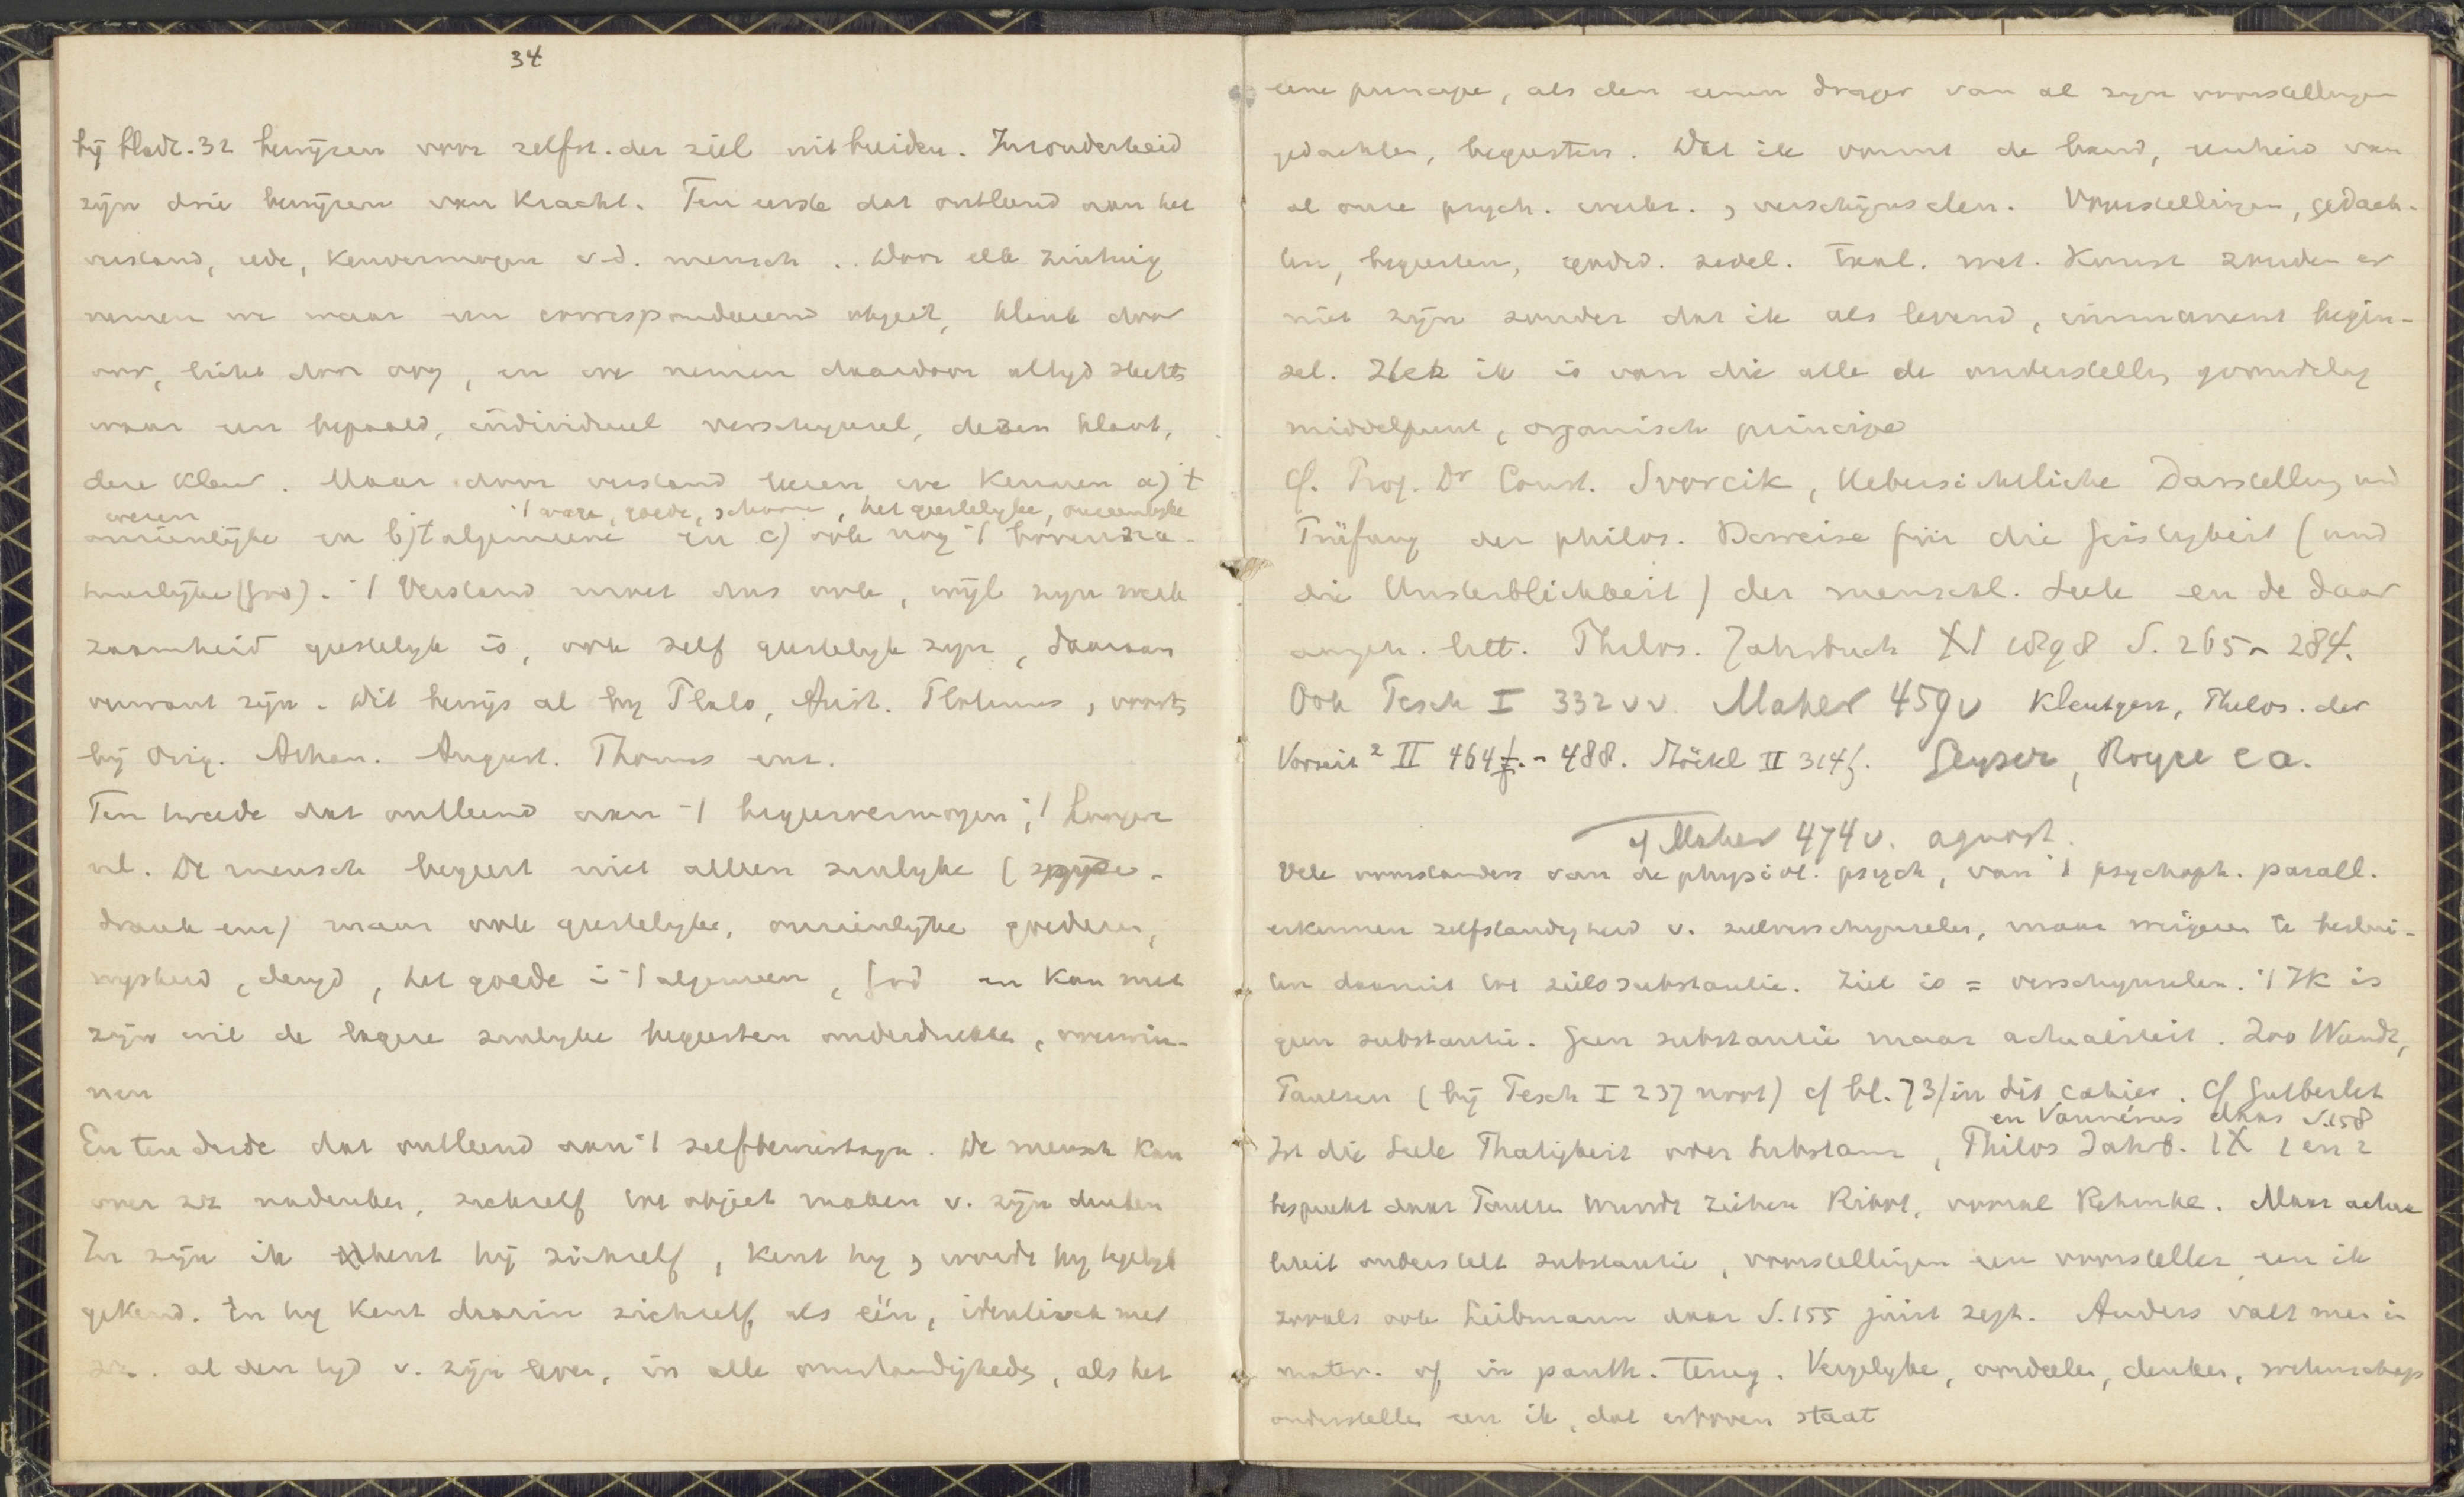 34
bij bladz. 32 bewijzen voor zelfst. der ziel uitbreiden. Inzonderheid
zijn drie bewijzen van kracht. Ten eerste dat ontleend aan het
verstand, rede, kenvermogen v. d. mensch. Door elk zintuig
nemen we waar een correspondeerend object, klank door
oor, licht door oog, en we nemen daardoor altijd slechts
waar een bepaald, individueel verschijnsel, dezen klank,
deze kleur. Maar door verstand leeren we kennen a) 't
wezen 't ware, goede, schoone, het geestelijke, onzienlijke
onzienlijke en b) 't algemeene en c) ook nog 't bovenna-
tuurlijke (God). 't Verstand moet dus ook, wijl zijn werk
zaamheid geestelijk is, ook zelf geestelijk zijn, daaraan
verwant zijn. Dit bewijs al bij Plato, Arist. Plotinus, voorts
bij Orig. Athan. August. Thomas enz.
Ten tweede dat ontleend aan 't begeervermogen; 't hoogere
nl. De mensch begeert niet alleen zinlijke (spijze-
drank enz) maar ook geestelijke, onzienlijke goederen,
wijsheid, deugd, het goede i 't algemeen, God en kan met
zijn wil de lagere zinlijke begeerten onderdrukken, overwin-
nen
En ten derde dat ontleend aan 't zelfbewustzijn. De mensch kan
over zz nadenken, zichzelf tot object maken v. zijn denken
In zijn ik kent hij zichzelf, kent hij, wordt hij tegelijk
gekend. En hij kent daarin zichzelf als één, identisch met
zz. al den tijd v. zijn leven, in alle omstandigheden, als het
eene principe, als den eenen drager van al zijn voorstellingen
gedachten, begeerten. Dat ik vormt de band, eenheid van
al onze psych. werkz., verschijnselen. Voorstellingen, gedach-
ten, begeerten, godsd. zedel. taal. wet. kunst zouden er
niet zijn zonder dat ik als levend, immanent begin-
sel. Het ik is van die alle de onderstelling grondslag
middelpunt, organisch principe
Cf. Prof. Dr Const. Svorcik, Uebersichtliche Darstellung und
Prüfung der philos. Beweise für die Geistigkeit (und
die Unsterblichkeit) der menschl. Seele en de daar
angeh. litt. Philos. Jahrbuch XI 1898 S. 265-284.
Ook Pesch I 332 vv. Maher 459v Kleutgen, Philos. der
Vorzeit ² II 464 f. - 488. Stöckl II 314 f. Geyser, Royce e a.
cf Maher 474 v. agnost.
Vele voorstanders van de physiol. psych, van 't psychoph. parall.
erkennen zelfstandigheid v. zielverschijnselen, maar weigeren te beslui-
ten daaruit tot zielssubstantie. Ziel is = verschijnselen. 't Ik is
geen substantie. Geen substantie maar actualiteit. Zoo Wundt,
Paulsen (bij Pesch I 237 noot) cf bl. 73 in dit cahier. Cf Gutberlet
en Vannérus daar S. 158
Ist die Seele Thätigkeit oder Substanz, Philos Jahrb. IX 1 en 2
bespreekt daar Paulsen Wundt Ziehen Ribot, vooral Rehmke. Maar actua
liteit onderstelt substantie, voorstellingen een voorsteller, een ik
zooals ook Liebmann daar S. 155 juist zegt. Anders valt men in
mater. of in panth. terug. Vergelijken, oordeelen, denken, wetenschap
onderstellen een ik, dat erboven staat